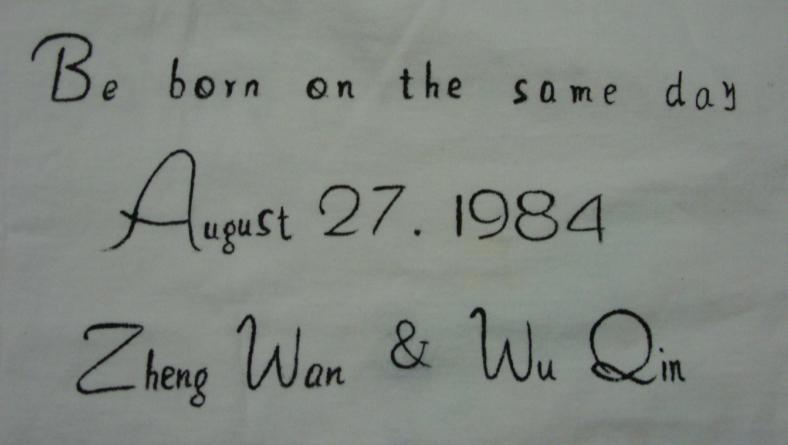 Be born on the same day
August 27. 1984
Zheng Wan & Wu Qin